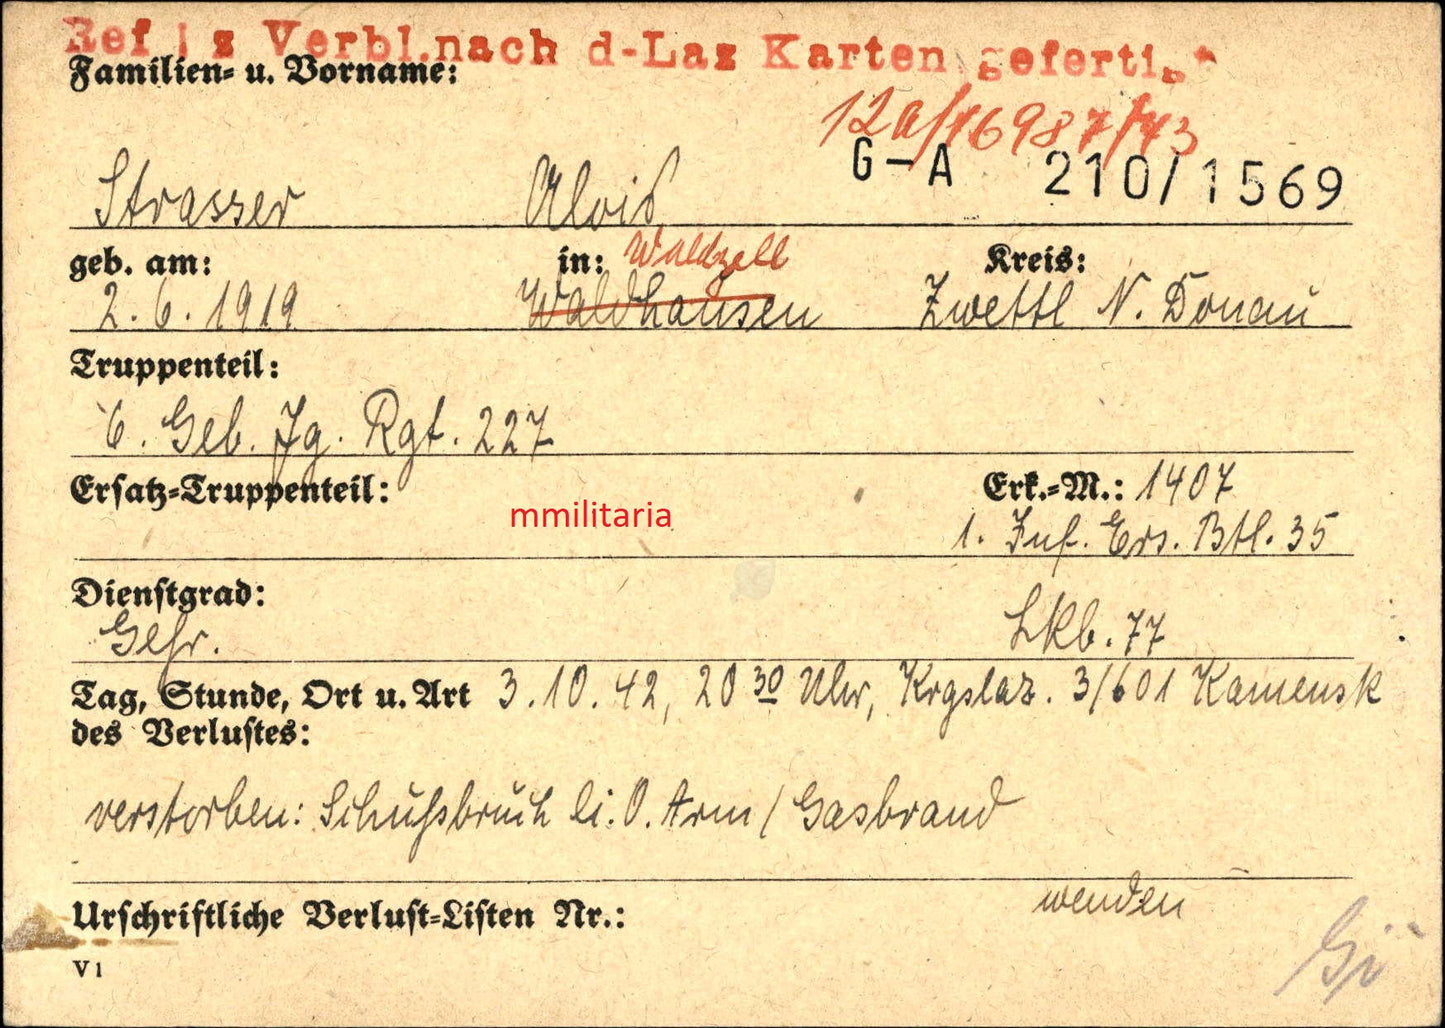 Ref I z Verbl.nach d-Laz Karten gefertigt
Familien- u. Vorname:
12a/16987/43
G-A 210/1569
Strasser Alois
geb. am: in: Waldzell Kreis:
2. 6. 1919 Waldhausen Zwettl N. Donau
Truppenteil:
6. Geb. Jg. Rgt. 227
Ersatz-Truppenteil: Erk.-M.: 1407
mmilitaria
1. Inf. Ers. Btl. 35
Dienstgrad:
Gefr. Lkb. 77
Tag, Stunde, Ort u. Art 3. 10. 42, 20 30 Uhr, Krgslaz. 3/601 Kamensk
des Verlustes:
verstorben: Schußbruch li. O. Arm / Gasbrand
wenden
Urschriftliche Verlust-Listen Nr.:
V 1